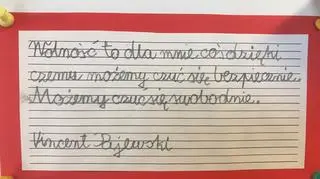 Wolność to dla mnie coś dzięki
czemu możemy czuć się bezpiecznie.
Możemy czuć się swobodnie.
Vincent Pajewski